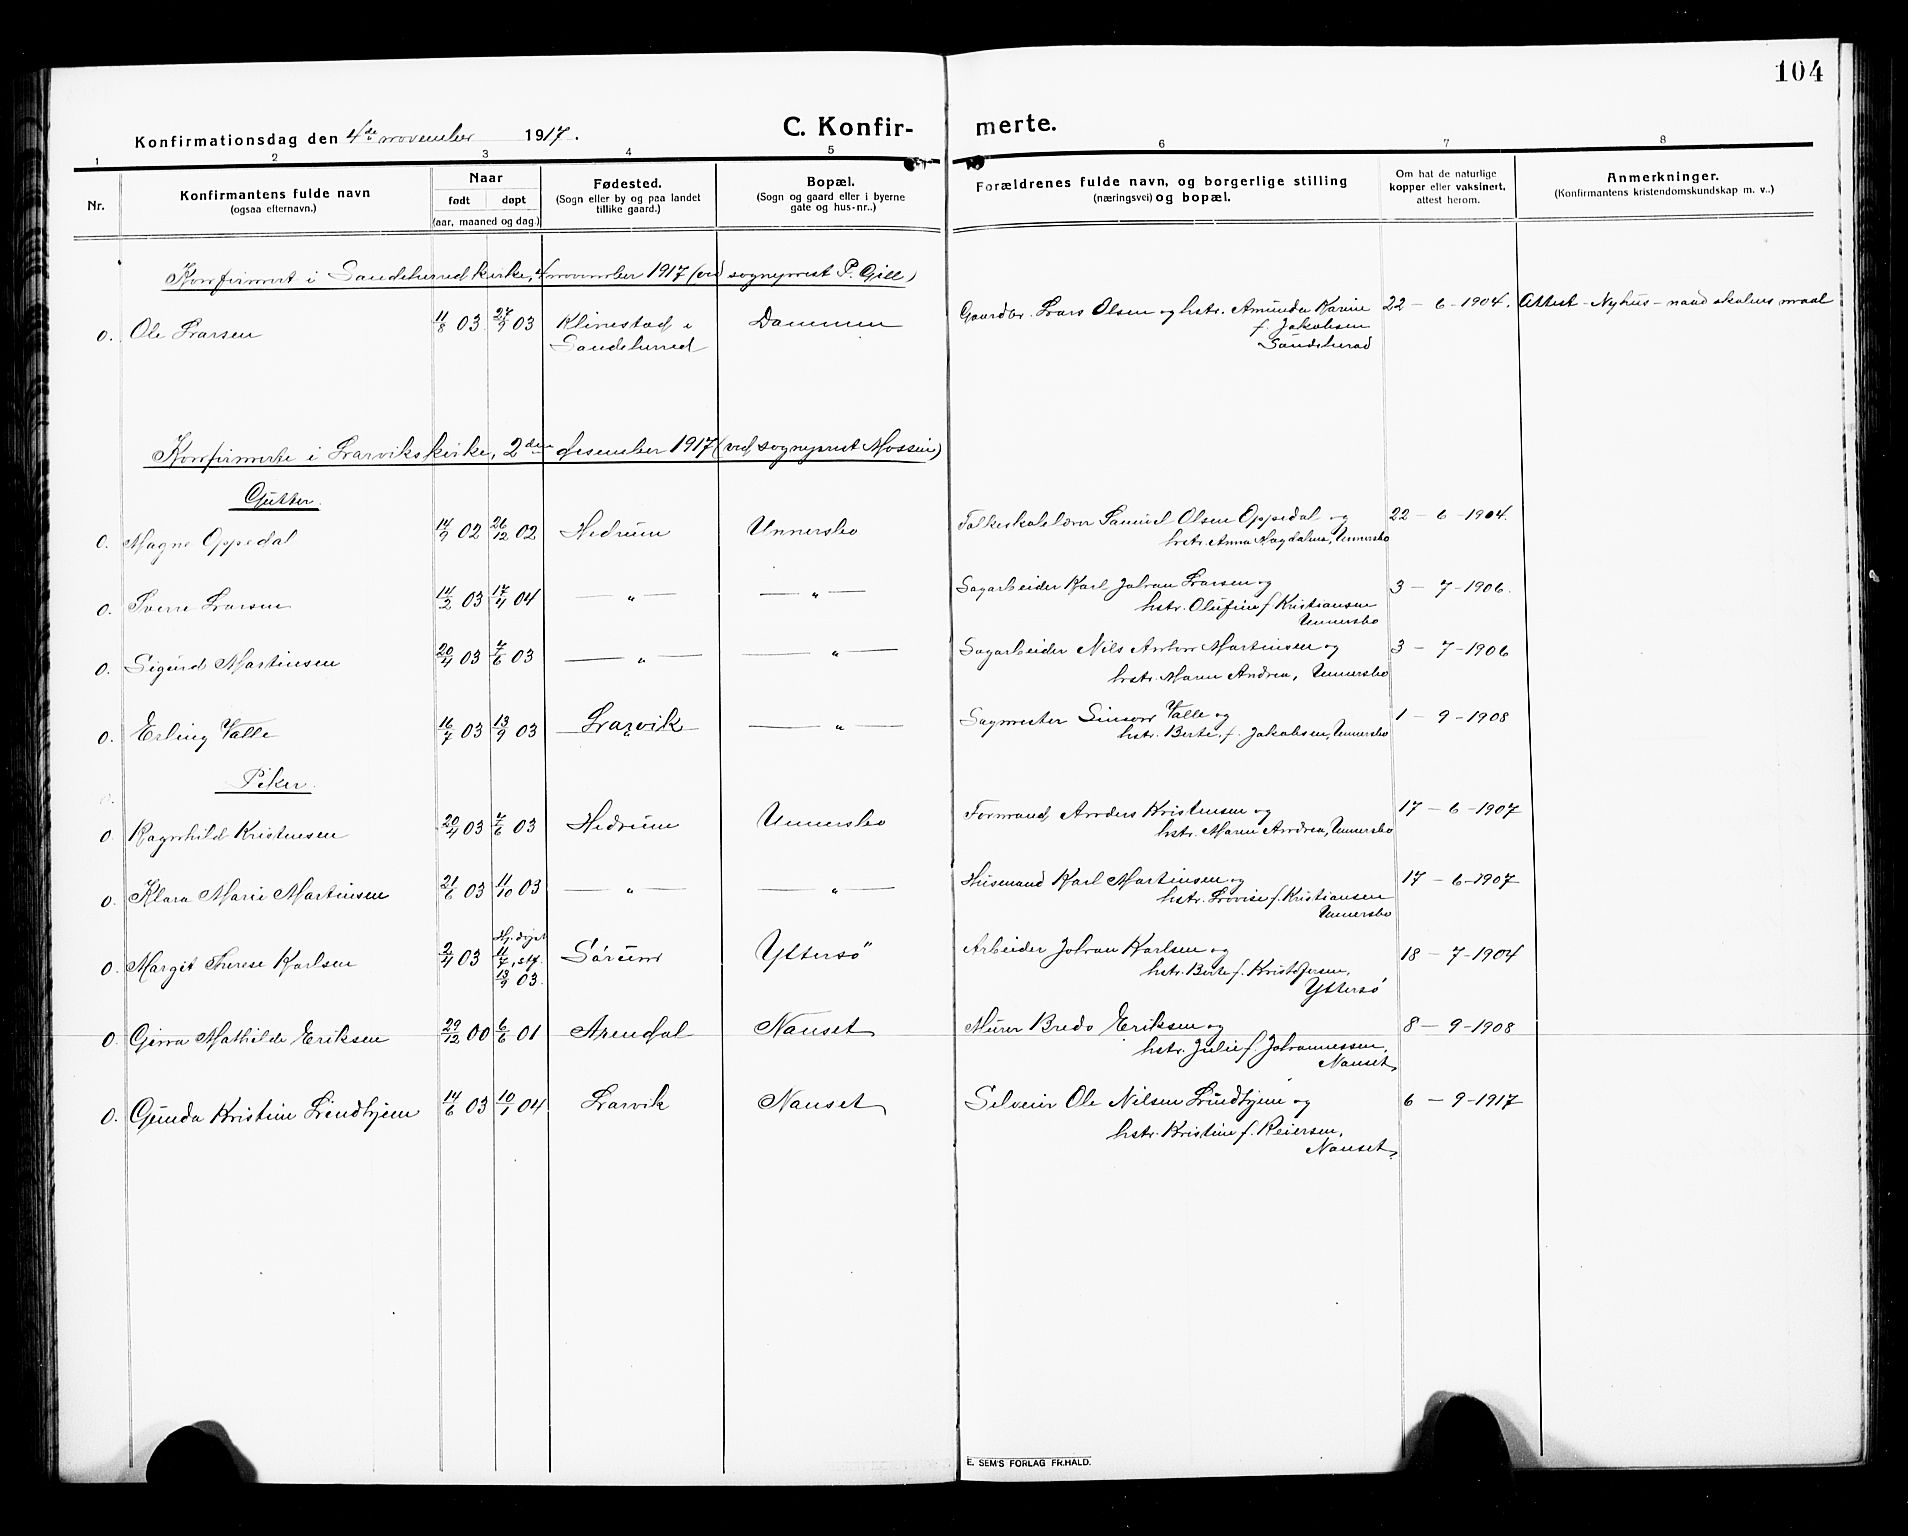 104
Konfirmationsdag den 4de november 1917.
C. Konfir-
merte.
1 2 3 4 5 6 7 8
Nr.
Konfirmantens fulde navn
(ogsaa efternavn.)
Naar
født døpt
(aar, maaned og dag.)
Fødested.
(Sogn eller by og paa landet
tillike gaard.)
Bopæl.
(Sogn og gaard eller i byerne
gate og hus-nr..)
Forældrenes fulde navn, og borgerlige stilling
(næringsvei) og bopæl.
Om hat de naturlige
kopper eller vaksinert,
attest herom.
Anmerkninger.
(Konfirmantens kristendomskundskap m. v..)
Konfirmert i Sandeherred kirke, 4 november 1917 (ved sogneprest P. Gill)
0. Ole Larsen 11/8 03 27/9 03 Klinestad i Dammen Gaardbr. Lars Olsen og hstr. Amunda Karine 22 - 6 - 1904. Attest - Nyhus - naad skolens maal
Sandeherred f. Jakobsen
Sandeherad
Konfirmerte i Larviks kirke, 2den desember 1917 (ved sogneprest Mossin)
Gutter.
0. Magne Oppedal 14/9 02 26/12 02 Hedrum Unnersbo Folkeskolelærer Samuel Olsen Oppedal og 22 - 6 - 1904.
hstr. Anna Magdalena, Unnersbo
0. Sverre Larsen 14/2 03 17/4 04 — " — — " — Sagarbeider Karl Johan Larsen og 3 - 7 - 1906.
hstr. Olufine f. Kristiansen
Unnersbo
0. Sigurd Martinsen 20/4 03 7/6 03 — " — — " — Sagarbeider Nils Anton Martinsen og 3 - 7 - 1906
hstr. Maren Andrea, Unnersbo
0. Erling Valle 16/7 03 13/9 03 Larvik — " — Sagmester Simon Valle og 1 - 9 - 1908
hstr. Berte, f. Jakobsen, Unnersbo
Piker.
0. Ragnhild Kristensen 20/4 03 7/6 03 Hedrum Unnersbo Formand Anders Kristensen og 17 - 6 - 1907
hstr. Maren Andrea, Unnersbo
0. Klara Marie Martinsen 21/6 03 11/10 03 — " — — " — Husmand Karl Martinsen og 17 - 6 - 1907
hstr. Lovise f. Kristiansen
Unnersbo
0. Margit Therese Karlsen 2/4 03 Hj. døpt 11/7, stf. 13/9 03. Sørum Yttersø Arbeider Johan Karlsen og 18 - 7 - 1904
hstr. Berte f. Kristofersen,
Yttersø
0. Ginva Mathilde Eriksen 29/12 00 6/6 01 Arendal Nanset Murer Bredo Eriksen og 8 - 9 - 1908
hstr. Julie f. Johannessen,
Nanset,
0. Gunda Kristine Lindhjem 14/6 03 10/1 04 Larvik Nanset Selveier Ole Nilsen Lindhjem og 6 - 9 - 1917
hstr. Kristine f. Reiersen,
Nanset,
E. SEM'S FORLAG FR.HALD.